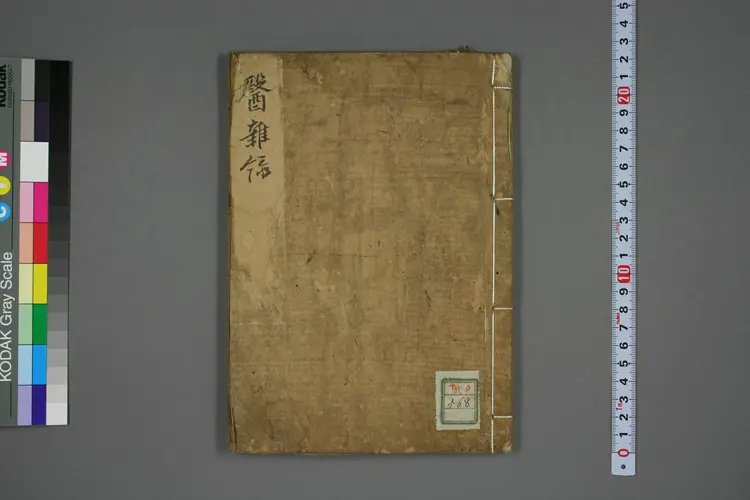 醫雜録
568
KODAK Gray Scale
Kodak
C
M
5
4
3
2
1
20
9
8
7
6
5
4
3
2
1
10
9
8
7
6
5
4
3
2
1
0